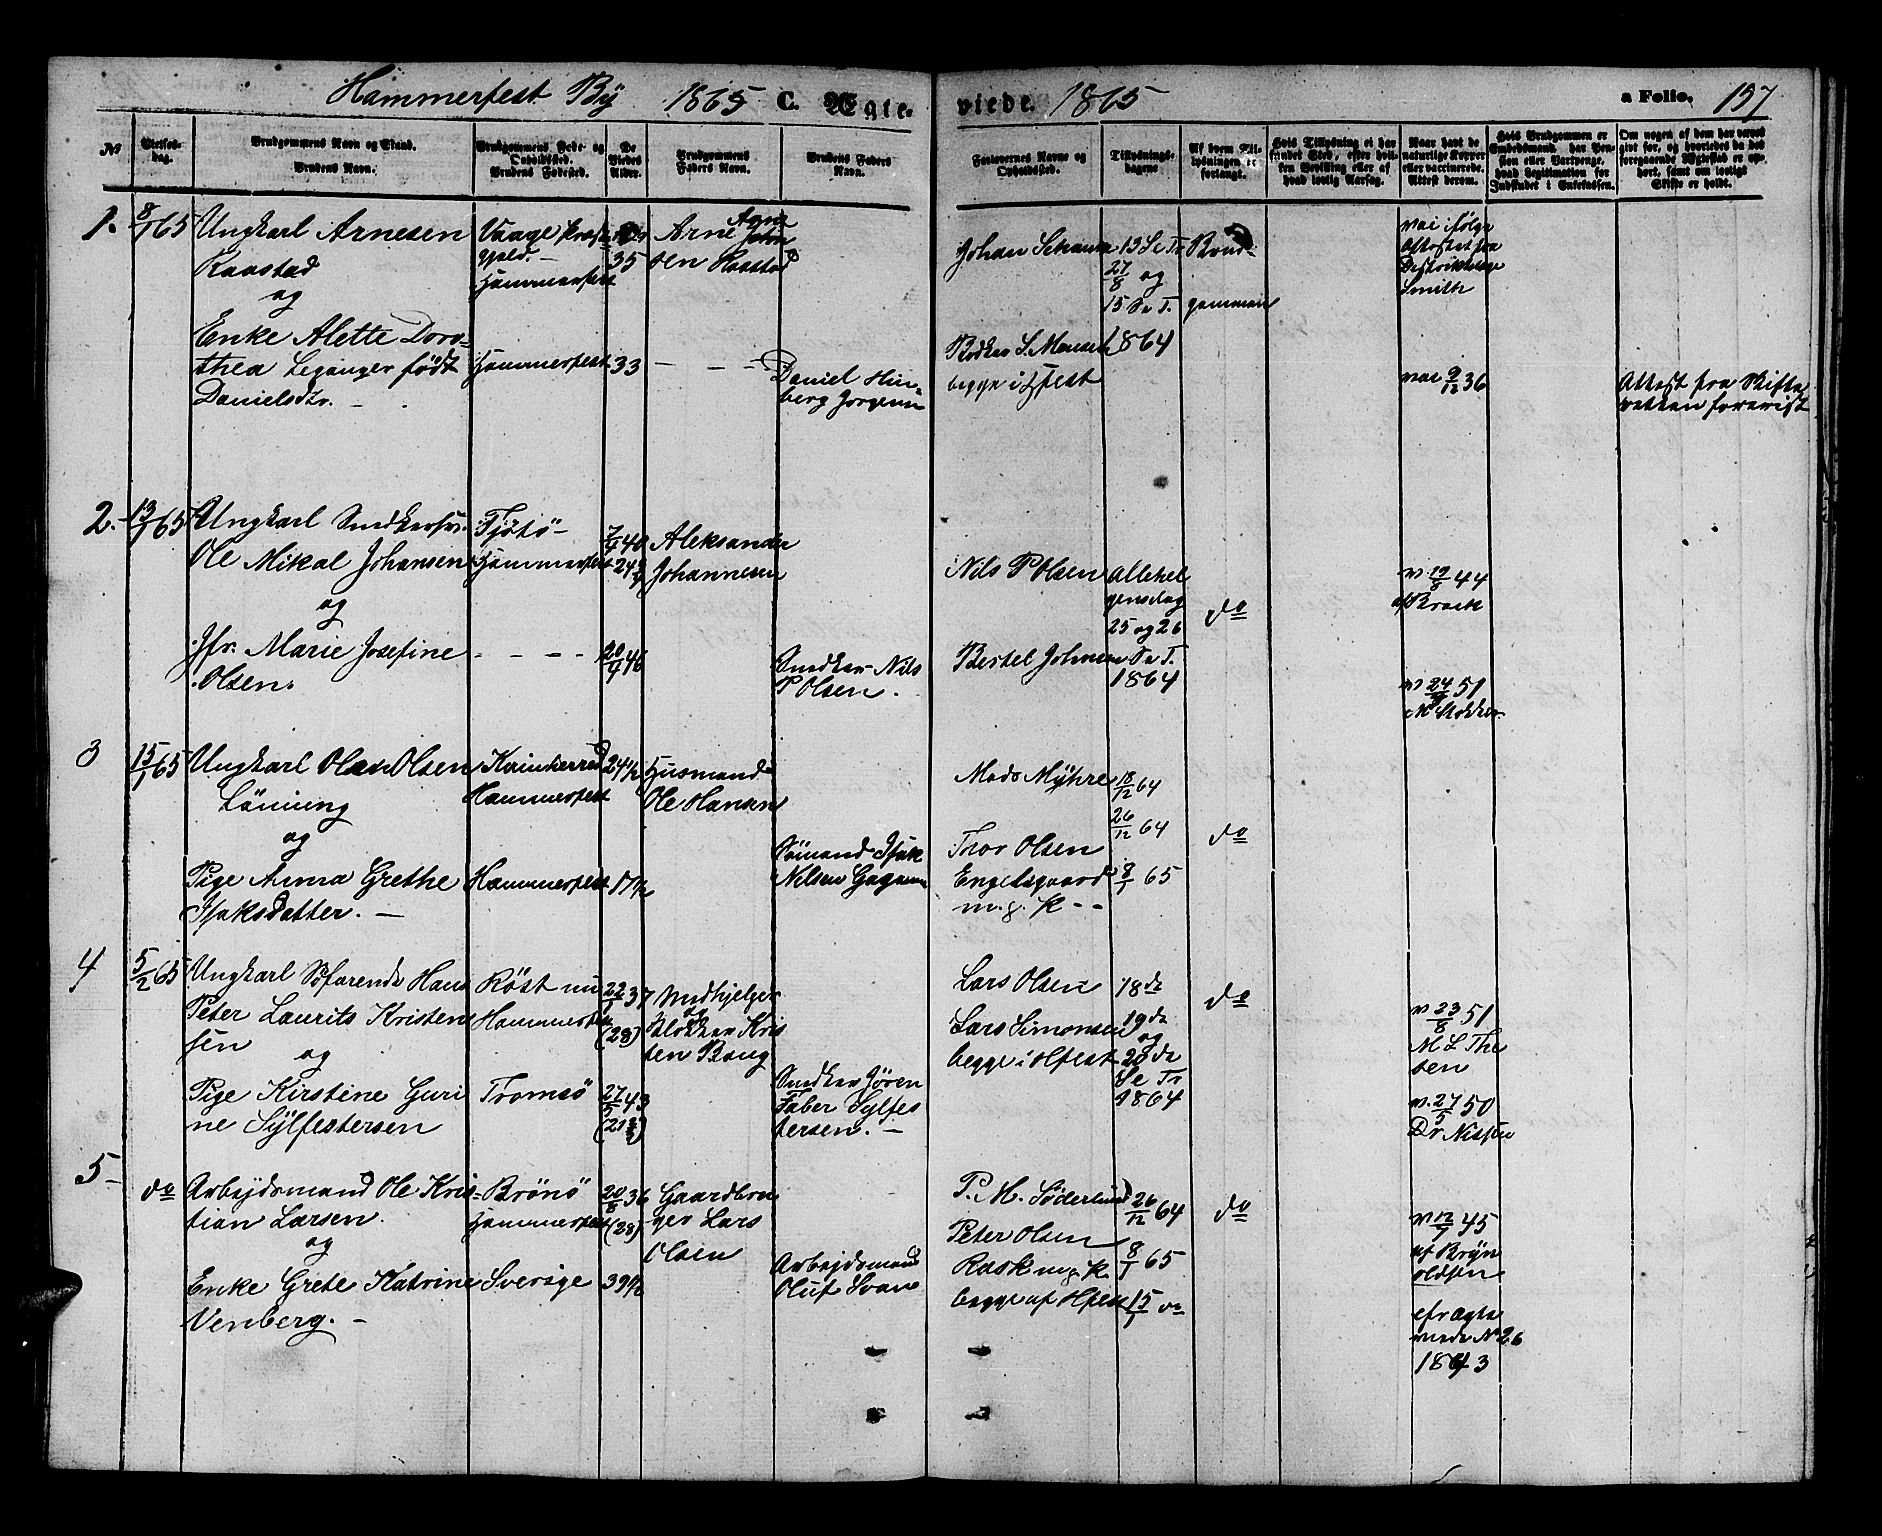 Hammerfest By 1865 C. Ægte-
viede. 1865 a Folio. 157
No
Vielses-
dag.
Brudgommens Navn og Stand.
Brudens Navn.
Brudgommens Føde- og
Opholdssted.
Brudens Fødested.
De
Viedes
Alder.
Brudgommens
Faders Navn.
Brudens Faders
Navn.
Forlovernes Navne og
Opholdssted.
Tillysnings-
dagene
Af hvem Til-
lysningen er
forlangt.
Hvis Tillysning ei har
fundet Sted, efter hvil-
ken Bevilling eller af
hvad lovlig Aarsag.
Naar havt de
naturlige Kopper
eller vaccinerede.
Attest derom.
Hvis Brudgommen er
Embedsmand, har Pen-
sion eller Vartpenge,
hvad Legitimation for
Indskudet i Enkekassen.
Om nogen af dem har været
givt før, og hvorledes da det
foregaaende Ægteskab er op-
hørt, samt om lovligt
Skifte er holdt.
1. 8/1 65
Ungkarl Arnesen
Raastad
og
Enke Alette Doro-
thea Leganger født
Danielsdtr.
Vaage Præste
gjeld.
Hammerfest
Hammerfest
35
33
Arne John
sen Raastad
Daniel Hin-
berg Jørgensen
Johan
13 Se Tr
27/8 og
15 Se T.
1864
begge i Hfest
Brud-
gommen
vac ifølge
Attest fra
Distriktslæge
Smith
vac 9/12 36
Attest fra Skifte
retten forevist
2. 13/1 65
Ungkarl Snedkersv.
Ole Mikal Johansen
og
Jfr. Marie Josefine
Olsen.
Tjøtö
Hammerfest
7/4 40
24 3/4
20/4 46
Aleksander
Johannesen
Snedker Nils
P Olsen.
Nils P Olsen
Bertel Johnsen
allehel
gensdag
25 og 26
Se T.
1864
do
v. 19/8 44
af Brock
v 24/9 51
3
15/1 65
Ungkarl Olsen
Lönning
og
Pige Anna Grethe
Isaksdatter.
Kvinherred
Hammerfest
Hammerfest
24 1/2
17 1/2
Husmand
Ole Hansen
Sömand Isak
Nilsen
Mads Myhre
Thor Olsen
Engelsgaard
m. g. K
18/12 64
26/12 64
8/1 65
do
4
5/2 65
Ungkarl Söfarende Hans
Peter Laurits Kristen
sen
og
Pige Kirstine Guri
ne Sylfestersen
Röst nu
Hammerfest
Tromsö
22/1 37
(28)
27/5 43
(21 2/3)
Medhjelper
og
Klokker Kris
ten Boug
Snedker Jören
Faber Sylfes
tersen.
Lars Olsen
Lars Simonsen
begge i Hfest
18de
19de
og
20de
Se Tr
1864
do
v 23/8 51
M L The
sen
v. 27/5 50
Dr Nissen
5
do
Arbejdsmand Ole Kris
tian Larsen.
og
Enke Grete Katrine
Venberg.
Brönö
Hammerfest
Sverige
20/8 36
(28)
39 1/2
Gaardbru
ger Lars
Olsen
Arbejdsmand
Oluf Svan
P. M. Söderlund
Peter Olsen
Rask m. g. K.
begge af Hfest
26/12 64
8/1 65
15/1 do
do
v 12/7 45
af Bryn
oldsen
efr ægte
viede No 26
1863